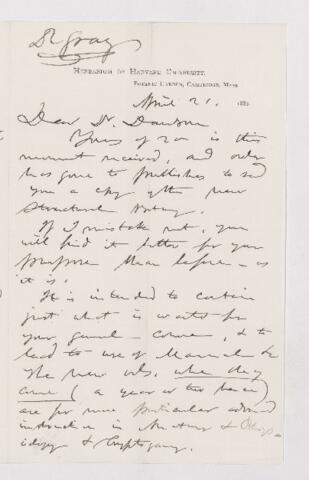 Dr Gray
HERBARIUM OF HARVARD UNIVERSITY,
BOTANIC GARDEN, CAMBRIDGE, MASS.
April 21, 188
Dear Dr. Dawson
Yours of 20 is this
moment received, and order
has gone to publishers to send
you a copy of the new
Structural Botany.
If I mistake not, you
will find it better for your
purpose than before – as
it is.
It is intended to contain
just what is wanted for
your general course, & to
lead to use of Manual &c
The new vols, when they
come (a year or two hence)
are for more particular advanced
instruction in &
& Cryptogamy.